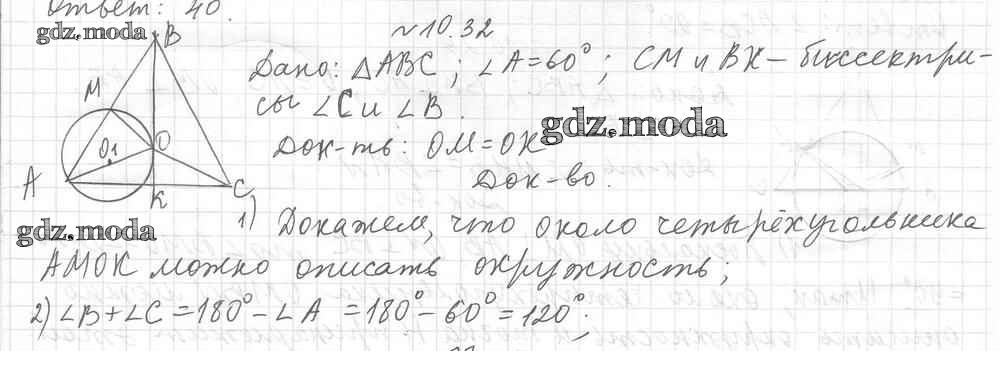 Ответ: 40.
gdz.moda
№10.32
Дано: △ABC; ∠A=60°; CM и BK – биссектри-
сы ∠C и ∠B.
gdz.moda
Док-ть: OM=OK
Док-во.
B
M
O₁
O
A
K
C
gdz.moda
1) Докажем, что около четырёхугольника
AMOK можно описать окружность;
2) ∠B+∠C=180°-∠A=180°-60°=120°;